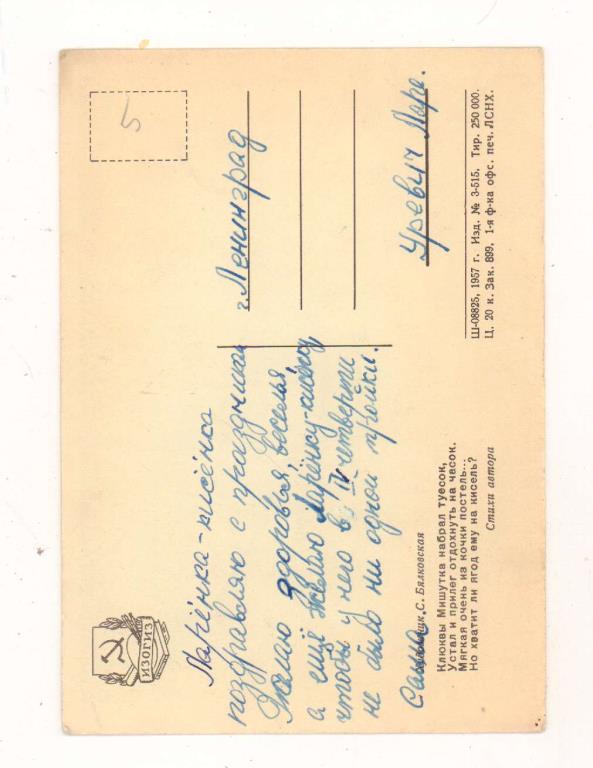 ИЗОГИЗ
Ларёнка-кисёнка
поздравляю с праздником
Желаю здоровья, веселья,
а ещё желаю Ларёнку-кисёнку
чтобы у него в IV четверти
не было ни одной тройки.
Саша.
С. Бялковская
Клюквы Мишутка набрал туесок,
Устал и прилег отдохнуть на часок.
Мягкая очень из кочки постель...
Но хватит ли ягод ему на кисель?
Стихи автора
5
г. Ленинград
Уревич Ларе.
Ш-08825, 1957 г. Изд. № 3-515. Тир. 250 000.
Ц. 20 к. Зак. 899, 1-я ф-ка офс. печ. ЛСНХ.